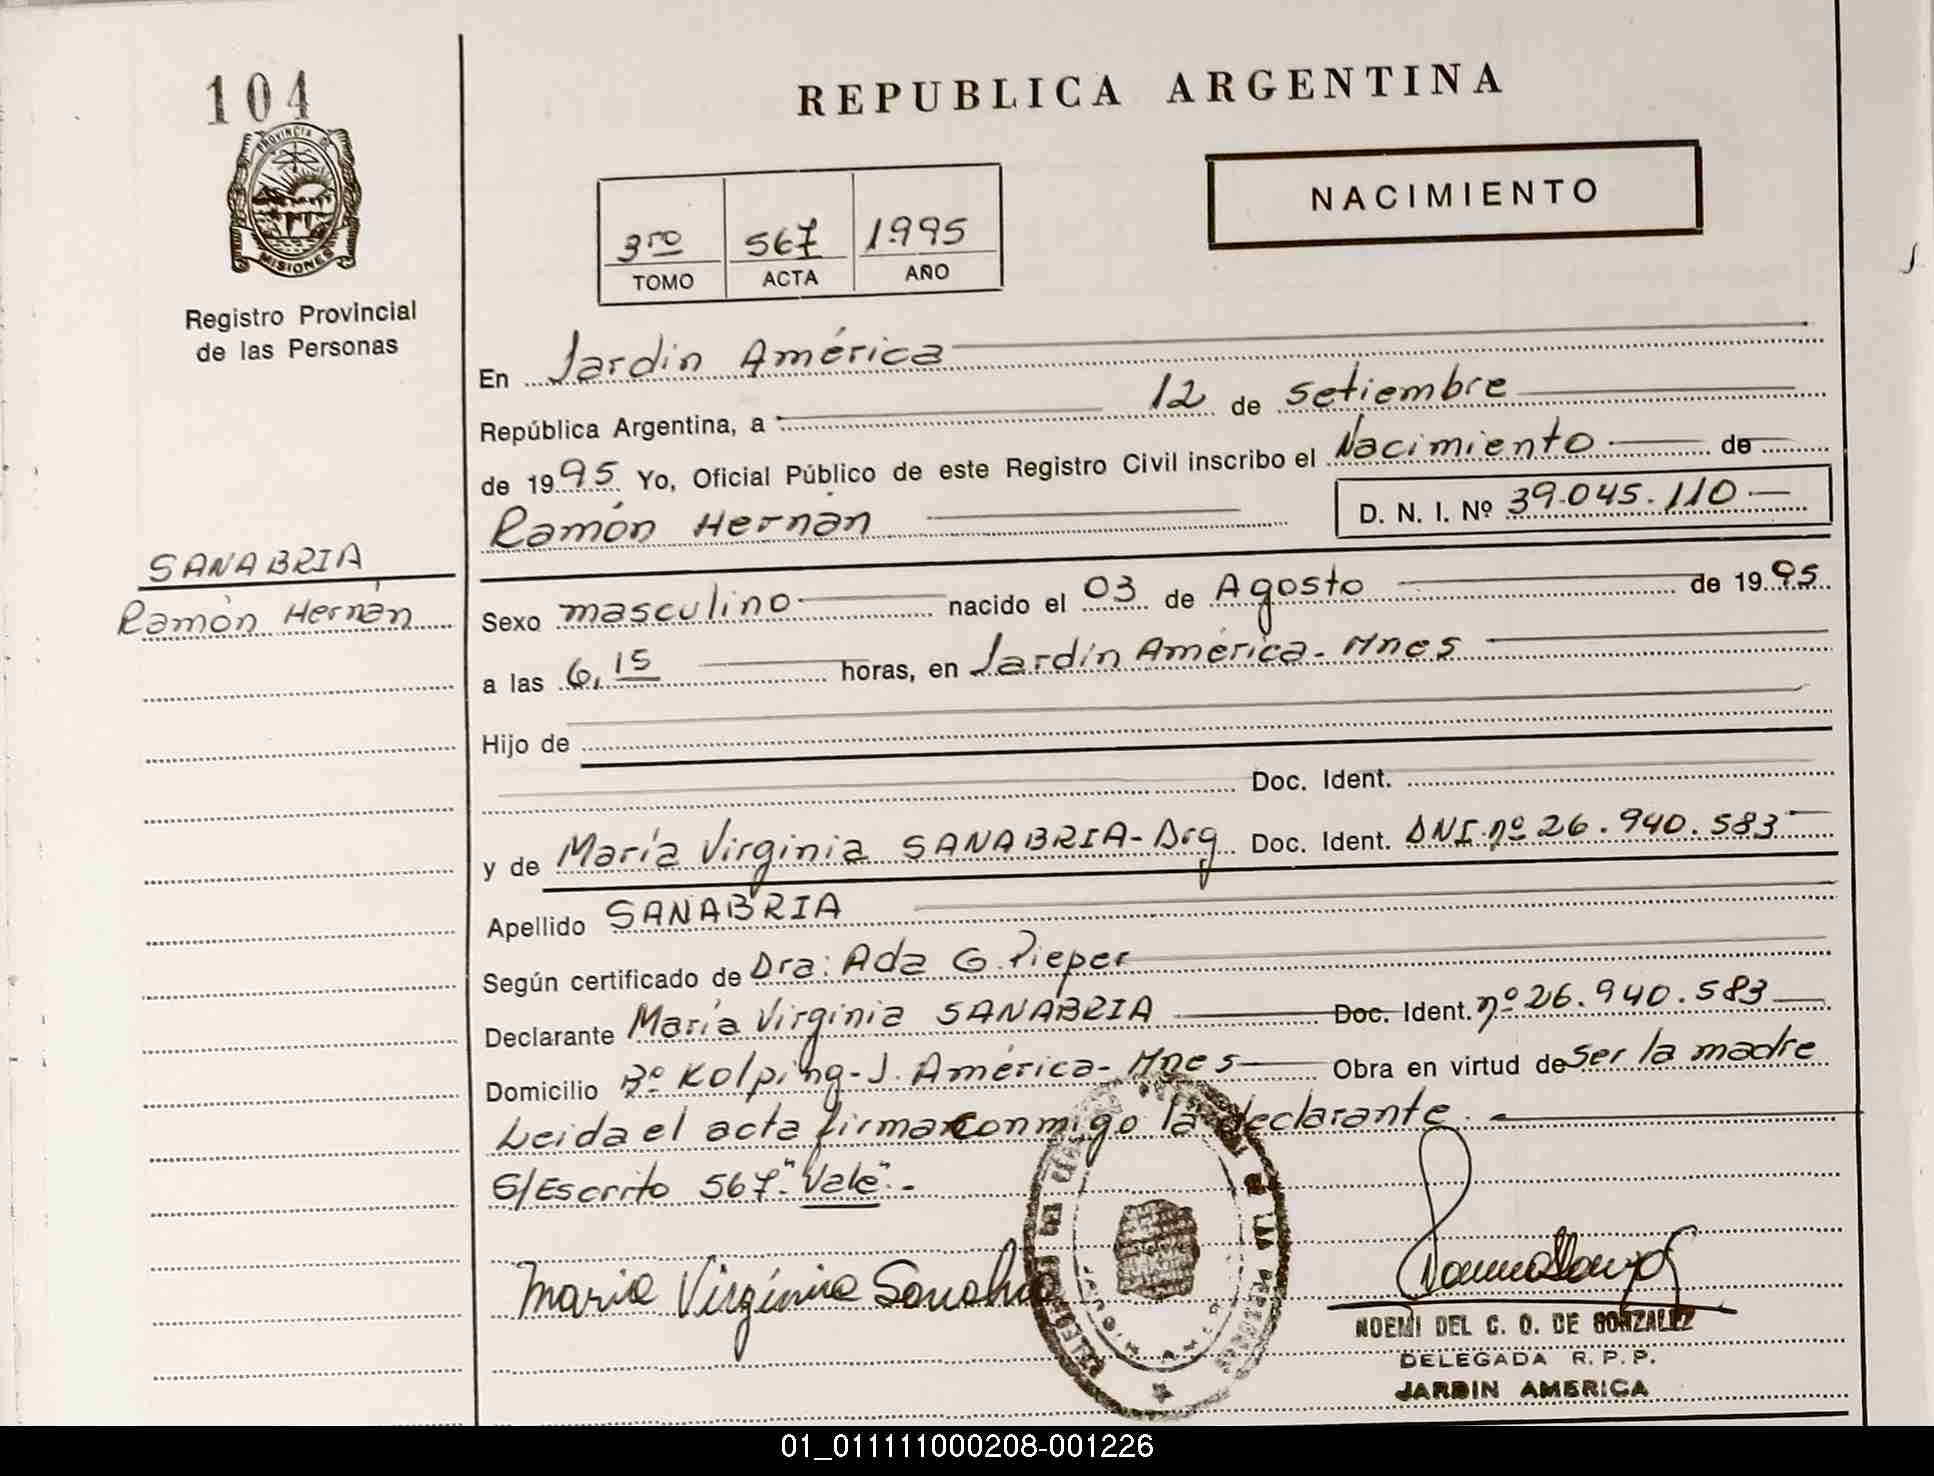 104
PROVINCIA DE
MISIONES
Registro Provincial
de las Personas
SANABRIA
Ramón Hernán
REPUBLICA ARGENTINA
NACIMIENTO
3ro 567 1.995
TOMO ACTA AÑO
En Jardín América
República Argentina, a 12 de setiembre
de 1995 Yo, Oficial Público de este Registro Civil inscribo el Nacimiento de
Ramón Hernán D. N. I. Nº 39.045.110
Sexo masculino nacido el 03 de Agosto de 1995
a las 6,15 horas, en Jardín América - Mnes
Hijo de
Doc. Ident.
y de María Virginia SANABRIA - Arg Doc. Ident. DNI nº 26.940.583
Apellido SANABRIA
Según certificado de Dra: Ada G. Pieper
Declarante María Virginia SANABRIA Doc. Ident. nº 26.940.583
Domicilio Bº Kolping - J. América - Mnes Obra en virtud de ser la madre
Leida el acta firma conmigo la declarante. -
S/Escrito 567 "Vale". -
Maria Virginia Sanabria
NOEMI DEL C. O. DE GONZALEZ
DELEGADA R. P. P.
JARDIN AMERICA
01_011111000208-001226